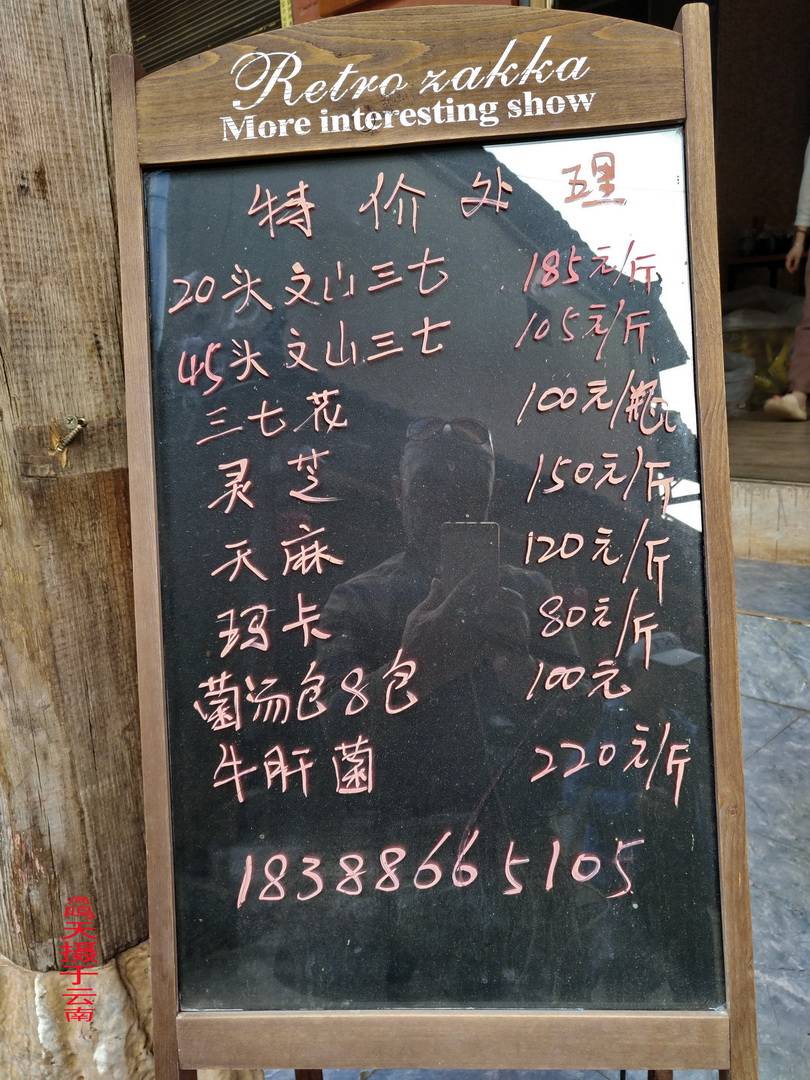 Retro zakka
More interesting show
特价处理
20头文山三七 185元/斤
45头文山三七 105元/斤
三七花 100元/瓶
灵芝 150元/斤
天麻 120元/斤
玛卡 80元/斤
菌汤包8包 100元
牛肝菌 220元/斤
18388665105
摄于云南